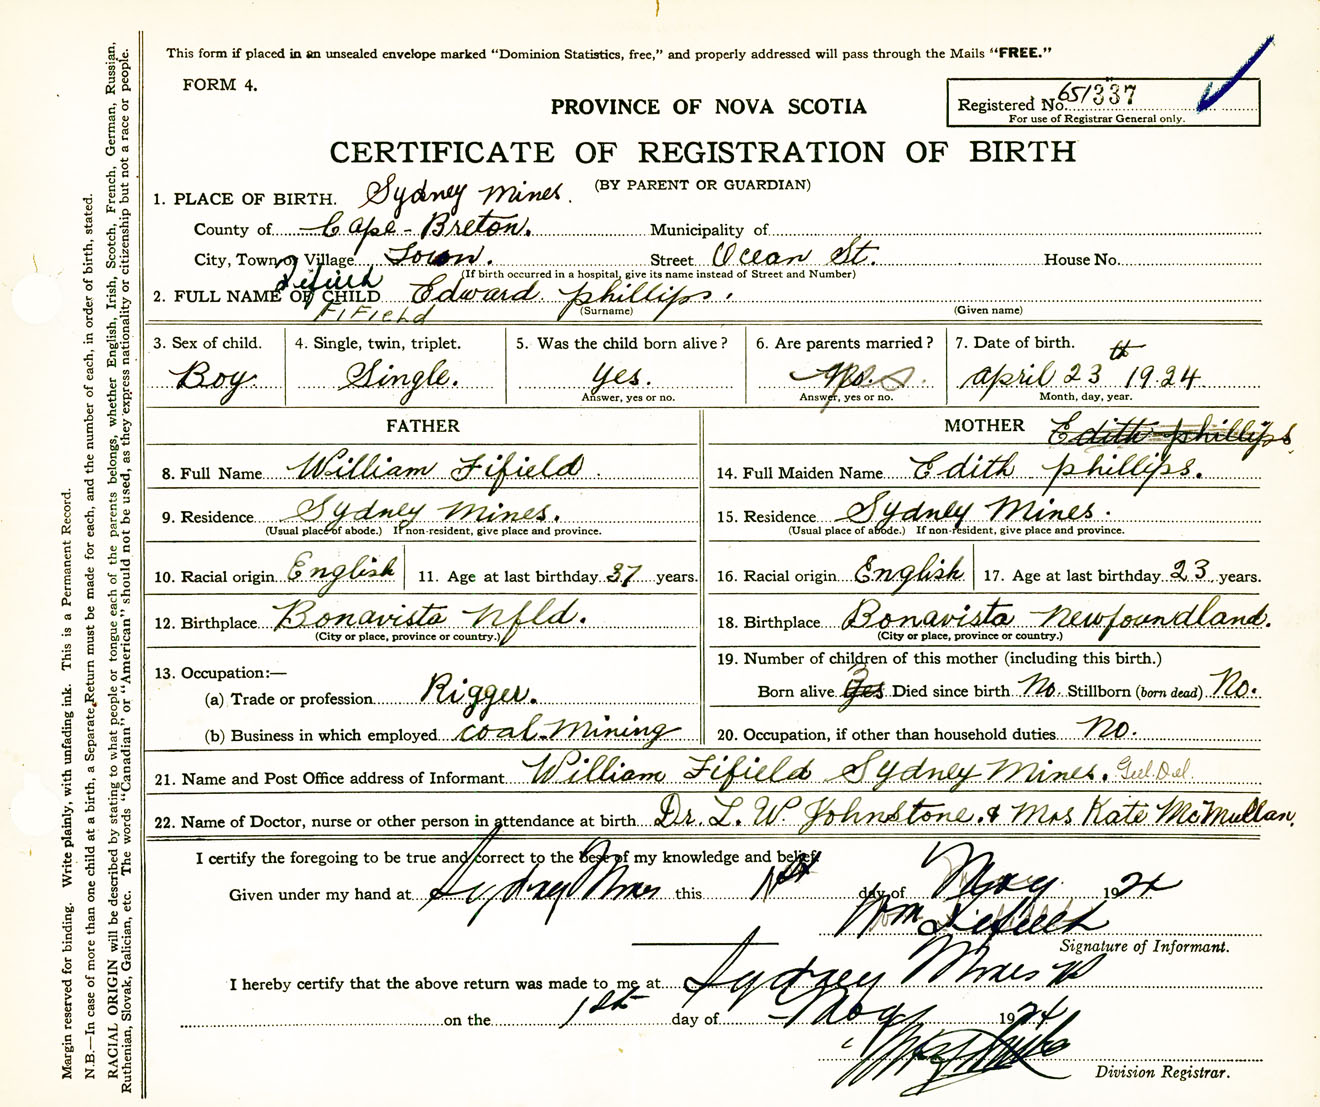 This form if placed in an unsealed envelope marked “Dominion Statistics, free,” and properly addressed will pass through the Mails “FREE.”
FORM 4.
Registered No. 651337
For use of Registrar General only.
PROVINCE OF NOVA SCOTIA
CERTIFICATE OF REGISTRATION OF BIRTH
(BY PARENT OR GUARDIAN)
1. PLACE OF BIRTH. Sydney Mines.
County of Cape-Breton. Municipality of
City, Town or Village Town. Street Ocean St. House No.
(If birth occurred in a hospital, give its name instead of Street and Number)
Fifield
2. FULL NAME OF CHILD Edward phillips.
FiField (Surname) (Given name)
3. Sex of child. 4. Single, twin, triplet. 5. Was the child born alive? 6. Are parents married? 7. Date of birth.
Boy. Single. yes. april 23th 1924
Answer, yes or no. Answer, yes or no. Month, day, year.
FATHER MOTHER Edith phillips
8. Full Name William Fifield. 14. Full Maiden Name Edith phillips.
9. Residence Sydney Mines. 15. Residence Sydney Mines.
(Usual place of abode.) If non-resident, give place and province. (Usual place of abode.) If non-resident, give place and province.
10. Racial origin English 11. Age at last birthday 37 years. 16. Racial origin English 17. Age at last birthday 23 years.
12. Birthplace Bonavista Nfld. 18. Birthplace Bonavista Newfoundland.
(City or place, province or country.) (City or place, province or country.)
13. Occupation:— 19. Number of children of this mother (including this birth.)
(a) Trade or profession Rigger. Born alive yes 3 Died since birth No. Stillborn (born dead) No.
(b) Business in which employed coal-Mining 20. Occupation, if other than household duties No.
21. Name and Post Office address of Informant William Fifield Sydney Mines. Gul. Del.
22. Name of Doctor, nurse or other person in attendance at birth Dr. L. W Johnstone. & Mrs Kate McMullan.
I certify the foregoing to be true and correct to the best of my knowledge and belief.
Given under my hand at Sydney Mines this 1st day of May 1924
Wm Fifield
Signature of Informant.
I hereby certify that the above return was made to me at Sydney Mines
on the 1st day of May 1924
Division Registrar.
Margin reserved for binding. Write plainly, with unfading ink. This is a Permanent Record.
N.B.—In case of more than one child at a birth, a Separate Return must be made for each, and the number of each, in order of birth, stated.
RACIAL ORIGIN will be described by stating to what people or tongue each of the parents belongs, whether English, Irish, Scotch, French, German, Russian,
Ruthenian, Slovak, Galician, etc. The words “Canadian” or “American” should not be used, as they express nationality or citizenship but not a race or people.